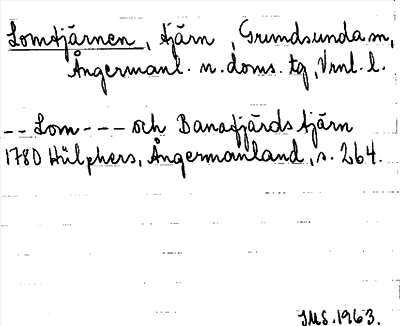 Lomtjärnen, tjärn, Grundsunda sn,
Ångermanl. n. doms. tg, Vrnl. l.
-- Lom --- och Banafjärds tjärn
1780 Hülphers, Ångermanland, s. 264.
IMS. 1963.